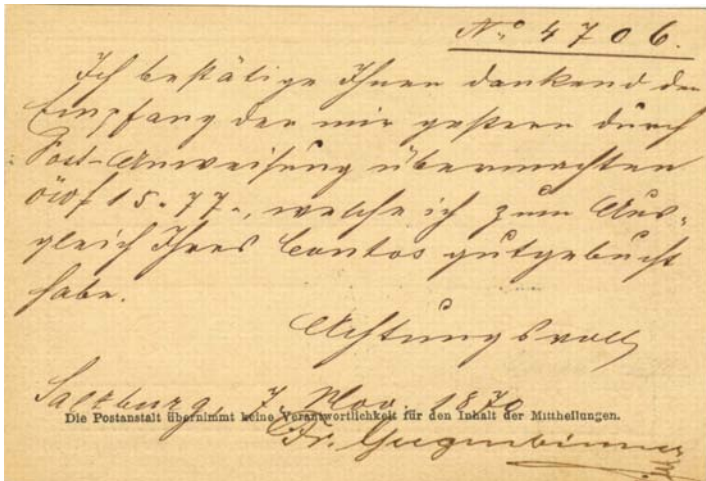 No 4706.
Ich bestätige Ihnen dankend den
Empfang der mir gestern durch
Post-Anweisung übermachten
öWf 15.77., welche ich zum Aus-
gleich Ihres Contos gutgebucht
habe.
Achtungsvoll
Salzburg, 7. Nov. 1870
Die Postanstalt übernimmt keine Verantwortlichkeit für den Inhalt der Mittheilungen.
Fr.